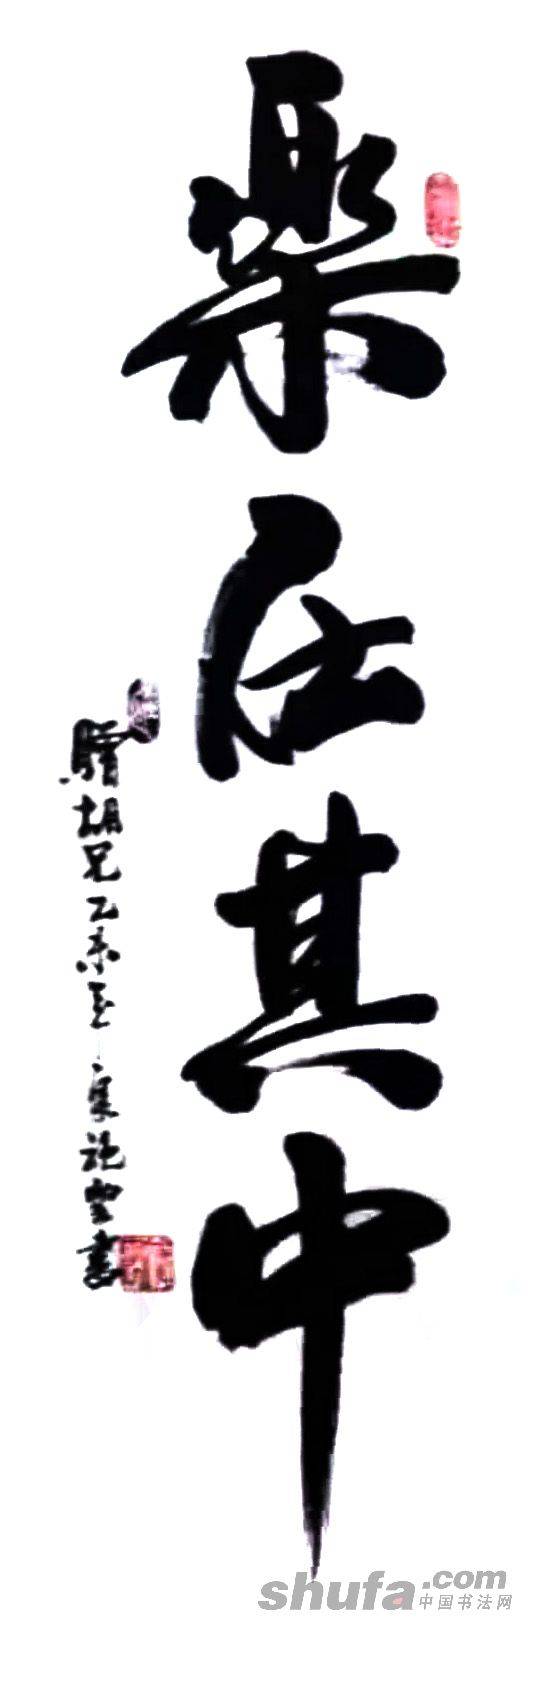 樂在其中
贈胡兄乙未
書
shufa.com
中国书法网